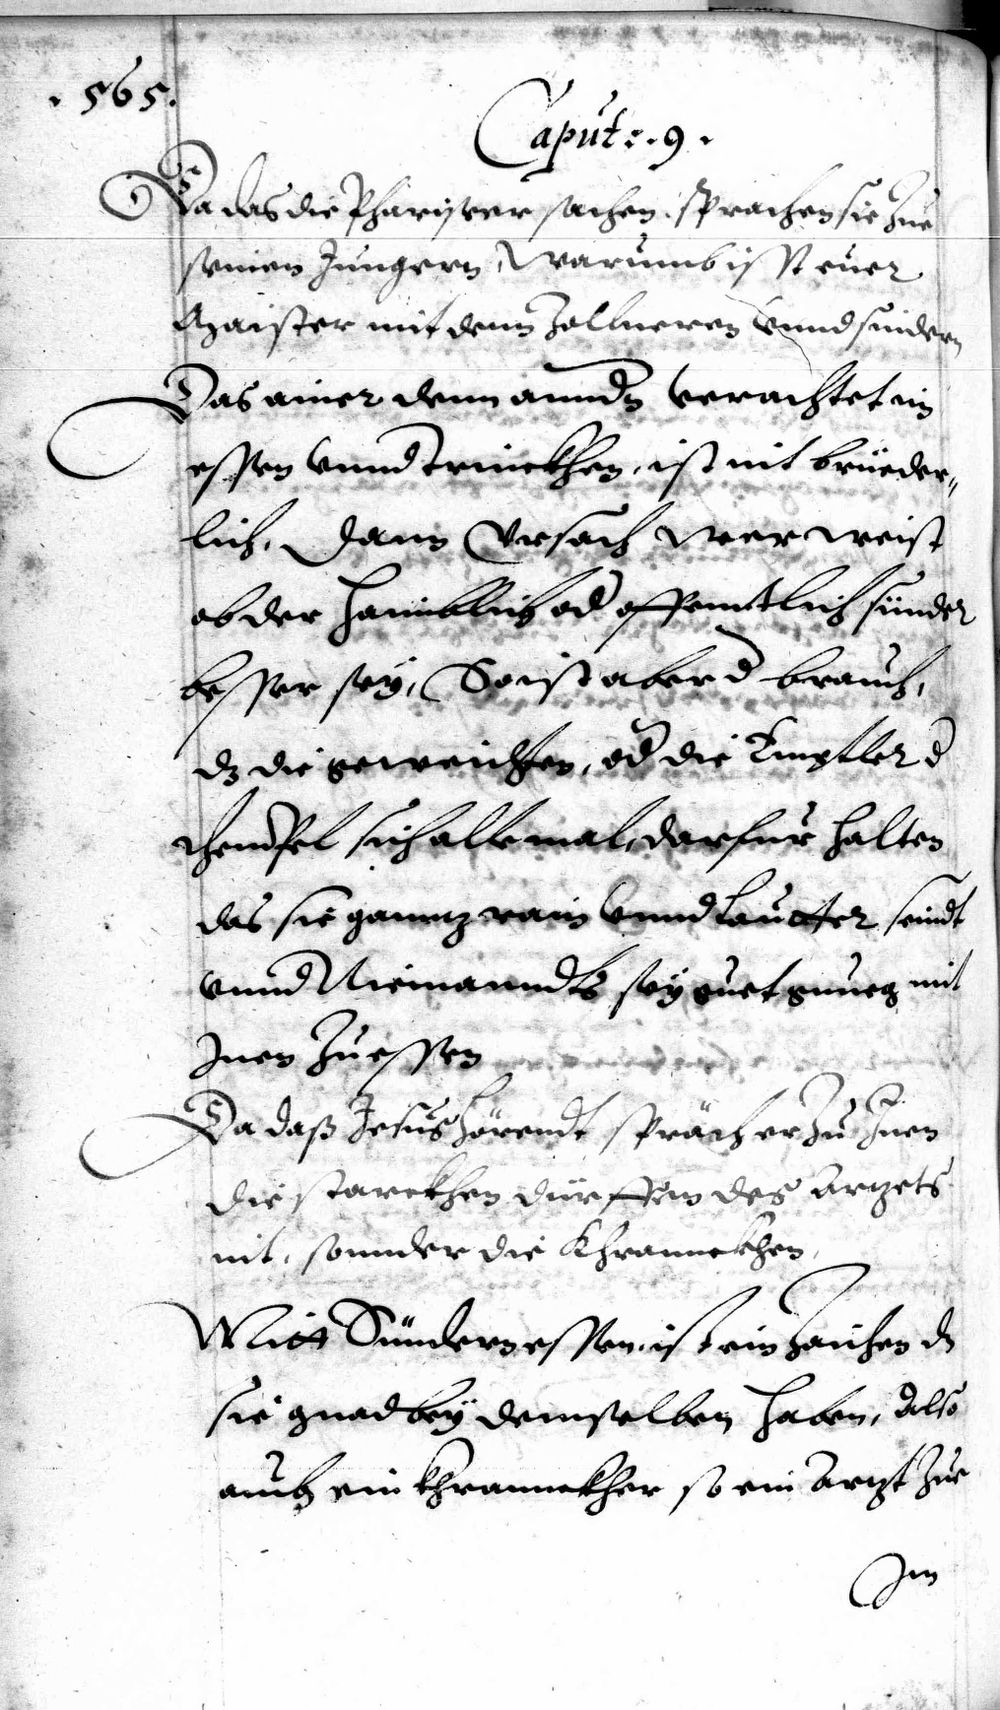 . 565.
Caput: . 9 .
Da das die Phariseer sachen, sprachen sie zue
seinen Jungern, Warumb isst euer
Maister mit denn Zollneren vnnd sündern
Das ainer denn anndn verachtet in
essen vnnd trinckhen, ist nit brüeder„
lich, Dann Vrsach wer weist
ob der haimblich od offenntlich sünder
besser sey, So ist aber d brauch,
dz die geweichten, od die Künstler d
sich allemal, darfür halten
das sie ganntz rain vnnd lautter seindt
vnnd Niemanndts sey guet gnueg mit
Jnen zu essen
Da daß Jesus hörendt sprach er zu Jnen
die starckhen dürffen des Artzets
nit, sonnder die Khranckhen,
Mitt Sündern essen, ist ein Zaichen dz
sie gnad bey demselben haben, Also
auch ein khrannckher so ein Artzt zue
Jm